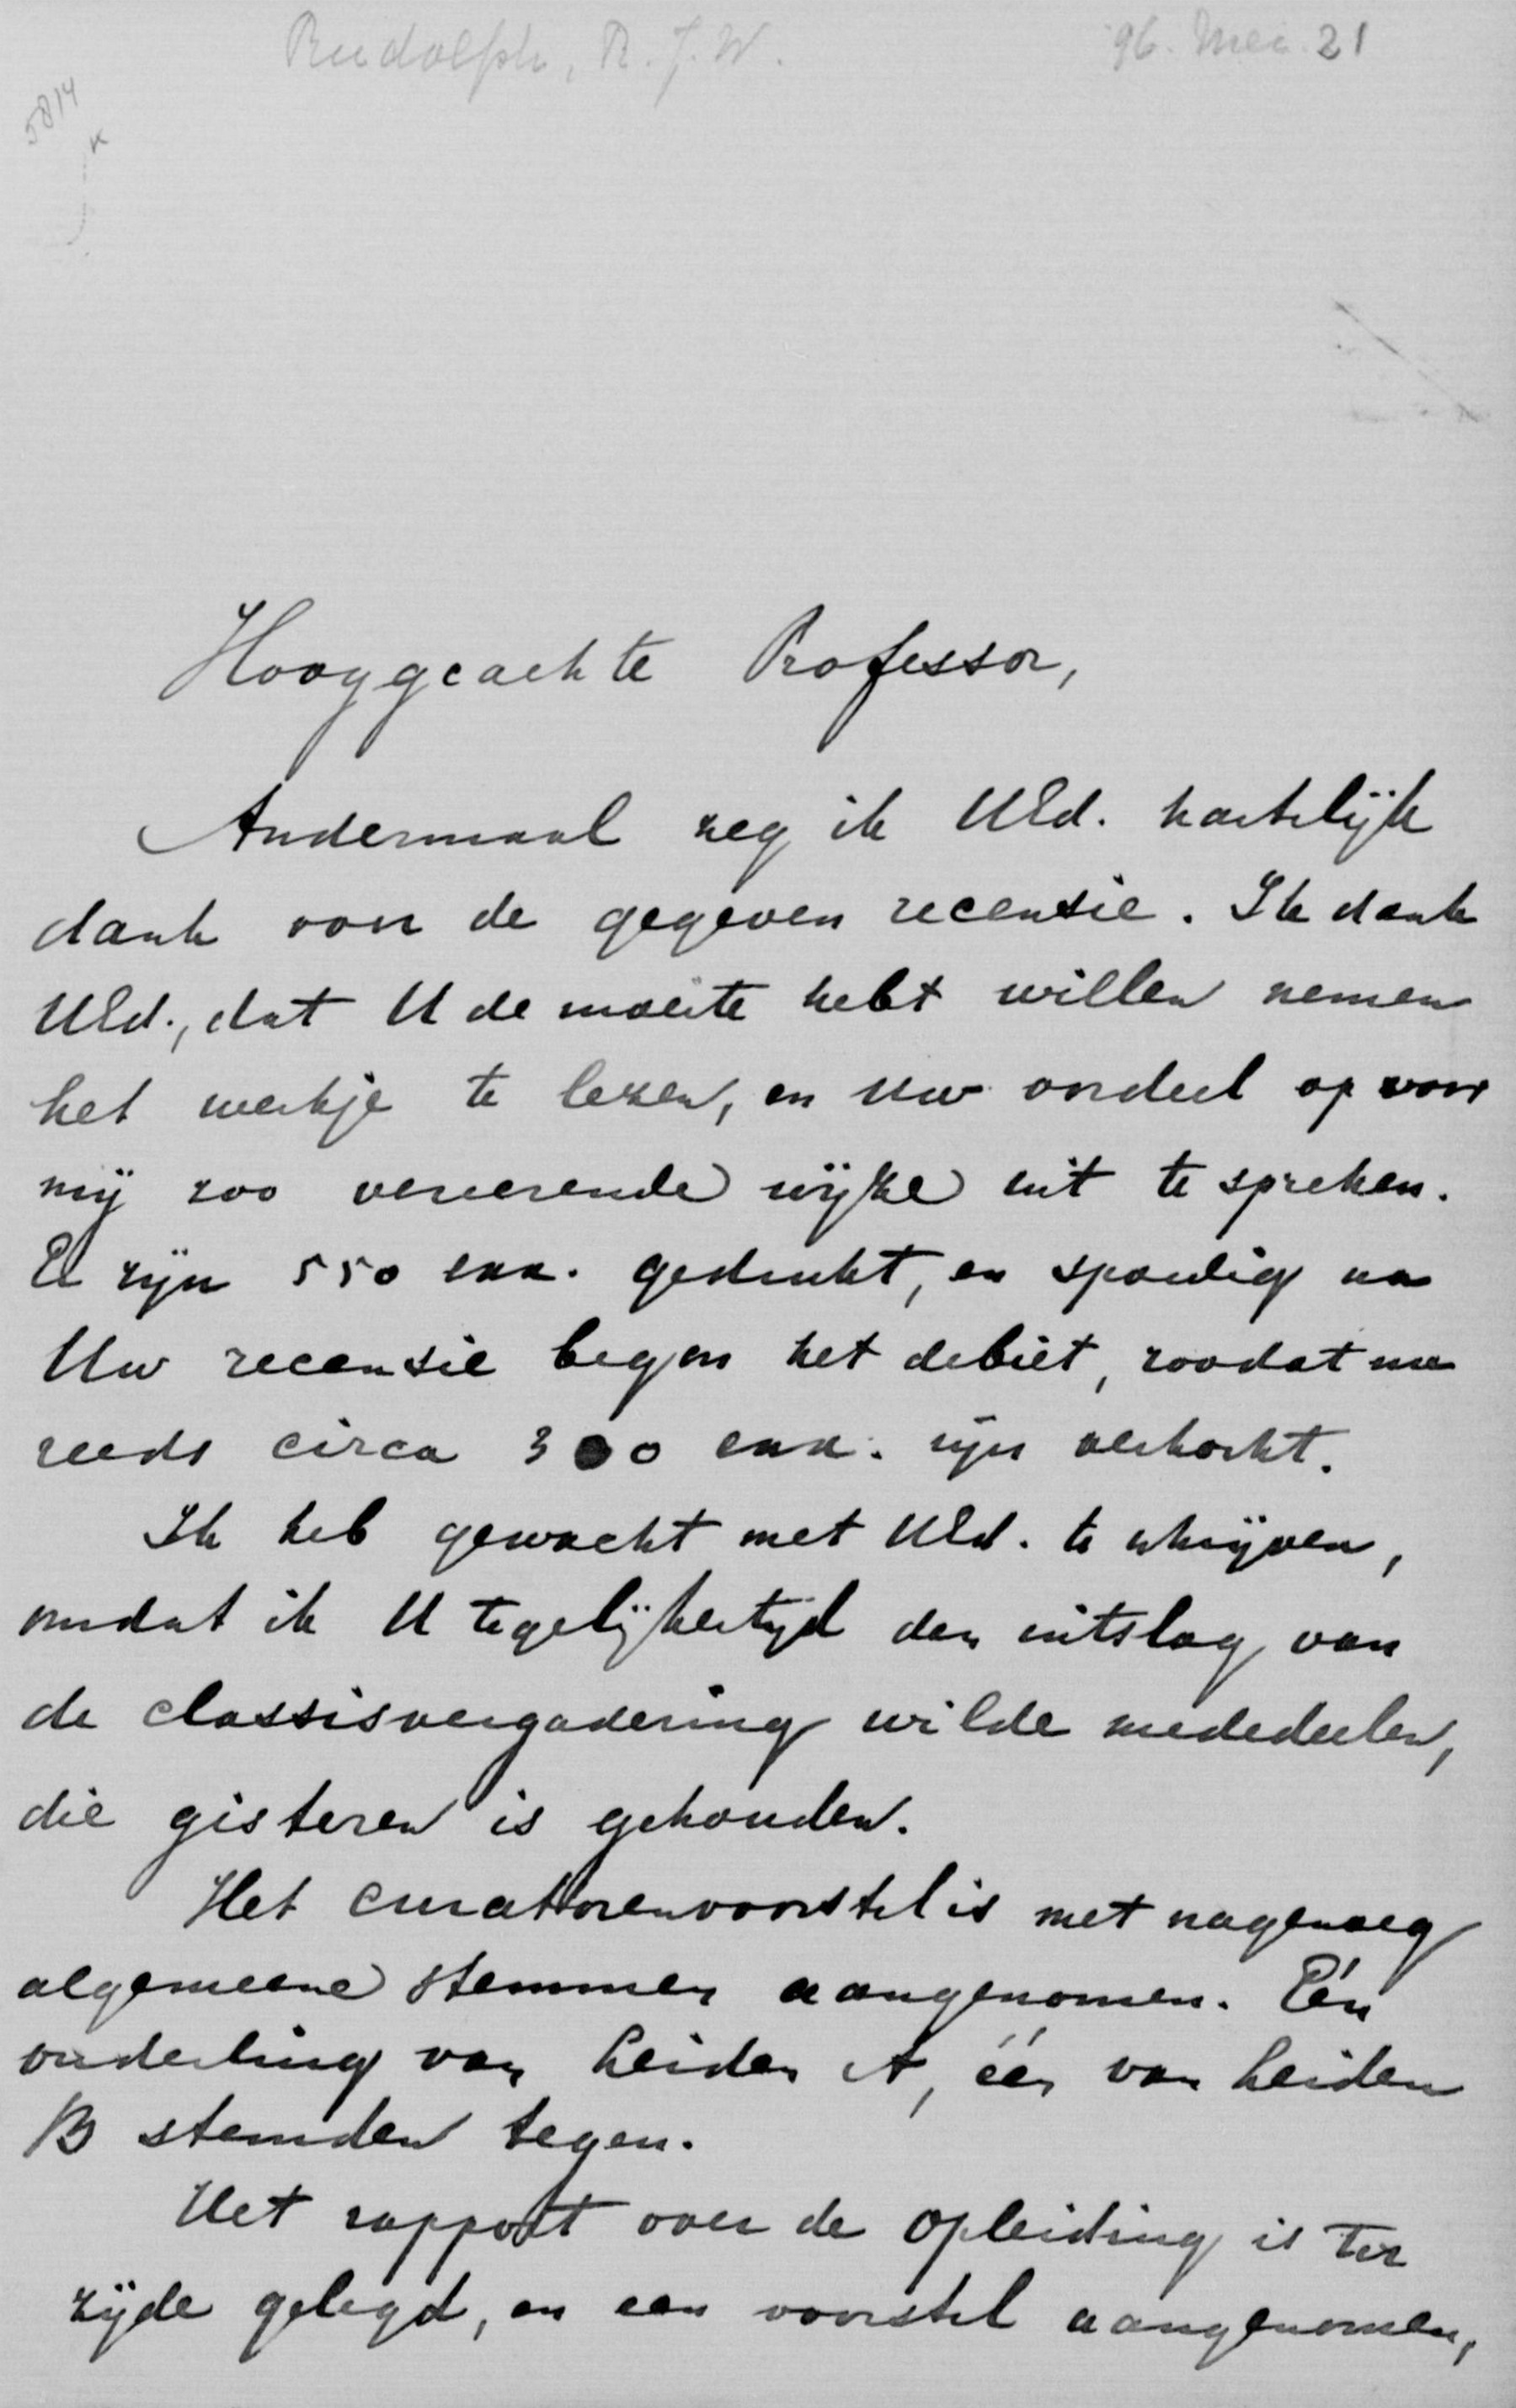 Rudolph, R. J. W. 96. Mei. 21
5814
Hooggeachte Professor,
Andermaal zeg ik UEd. hartelijk
dank voor de gegeven recensie. Ik dank
UEd., dat U de moeite hebt willen nemen
het werkje te lezen, en Uw oordeel op voor
mij zoo vereerende wijze uit te spreken.
Er zijn 550 exx. gedrukt, en spoedig na
Uw recensie begon het debiet, zoodat nu
reeds circa 300 exx. zijn verkocht.
Ik heb gewacht met UEd. te schrijven,
omdat ik U tegelijkertijd den uitslag van
de classisvergadering wilde mededeelen,
die gisteren is gehouden.
Het curatorenvoorstel is met nagenoeg
algemeene stemmen aangenomen. Één
ouderling van Leiden A, één van Leiden
B stemden tegen.
Het rapport over de opleiding is ter
zijde gelegd, en een voorstel aangenomen,